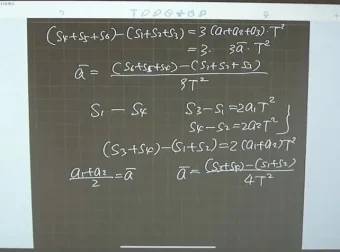 (S4+S5+S6)-(S1+S2+S3)=3(a1+a2+a3)·T²
=3. 3a̅·T²
a̅=((S6+S5+S4)-(S1+S2+S3))/9T²
S1 — S4 S3-S1=2a1T²
S4-S2=2a2T²
(S3+S4)-(S1+S2)=2(a1+a2)T²
(a1+a2)/2=a̅ a̅=((S3+S4)-(S1+S2))/4T²